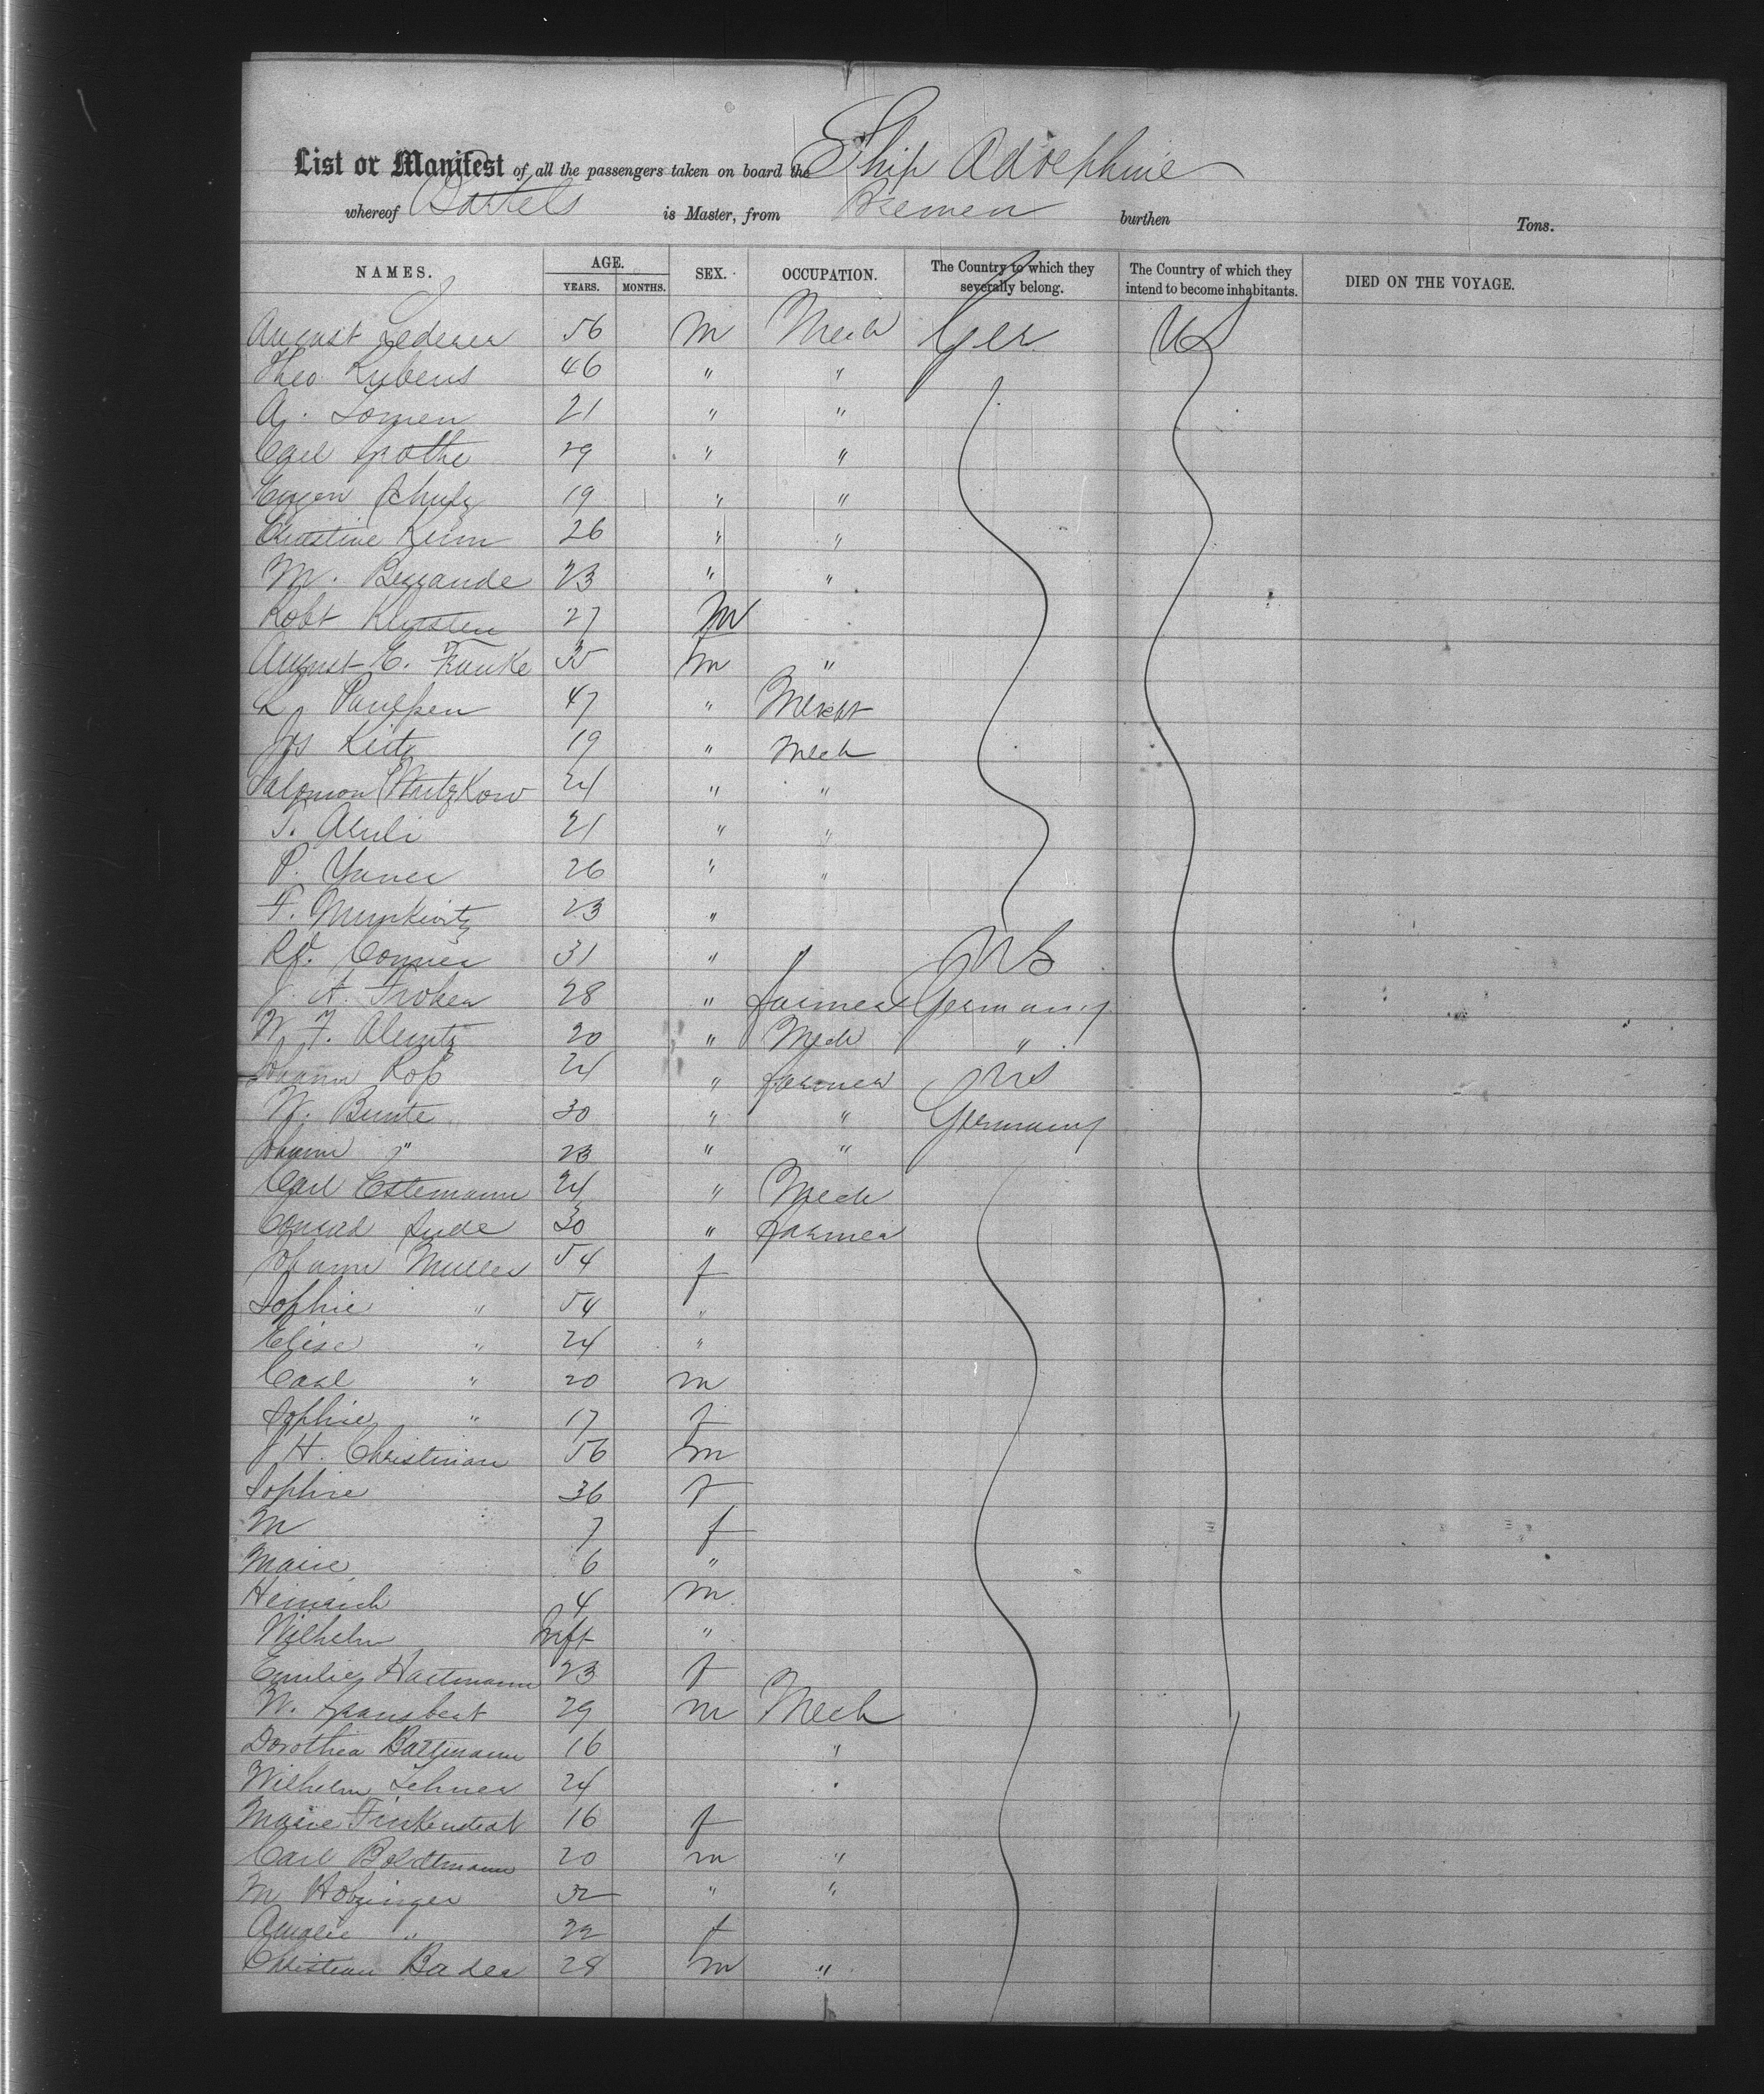 List or Manifest of all the passengers taken on board the Ship Adolphine
whereof Bartels is Master, from Bremen burthen Tons.
NAMES. AGE. YEARS. MONTHS. SEX. OCCUPATION. The Country to which they severally belong. The Country of which they intend to become inhabitants. DIED ON THE VOYAGE.
August Lederer 56 m Mech Ger US
Theo Rubens 46 " "
A. 21 " "
Carl Grothe 29 " "
Eugen Schulz 19 " "
Christine Keim 26 " "
M. 23 " "
Robt 27 m
August C. Franke 35 m "
L. Paulsen 47 " Mercht
Jos 19 " Mech
Salomon 24 " "
T. 21 " "
P. 26 " "
F. Munkwitz 23 "
31 " US
J. A. 28 " farmer Germany
W. F. 20 " Mech "
Johann 24 " farmer US
W. Bunte 30 " " Germany
Johann " 23 " "
Carl Estemann 24 " Mech
Conrad 30 " farmer
Johann Muller 54 f
Sophie " 54 "
Elise " 24 "
Carl " 20 m
Sophie " 17 f
J H. Christman 56 m
Sophie 36 f
M 7 f
Marie 6 "
Heinrich 4 m
Wilhelm Inft "
Emilie Hartmann 23 f
W. 29 m Mech
Dorothea 16 "
Wilhelm Lehner 24
Marie 16 f
Carl Boldtmann 20 m "
M Holzinger 32 " "
Amalie " 22 f
Christian Bader 28 m "